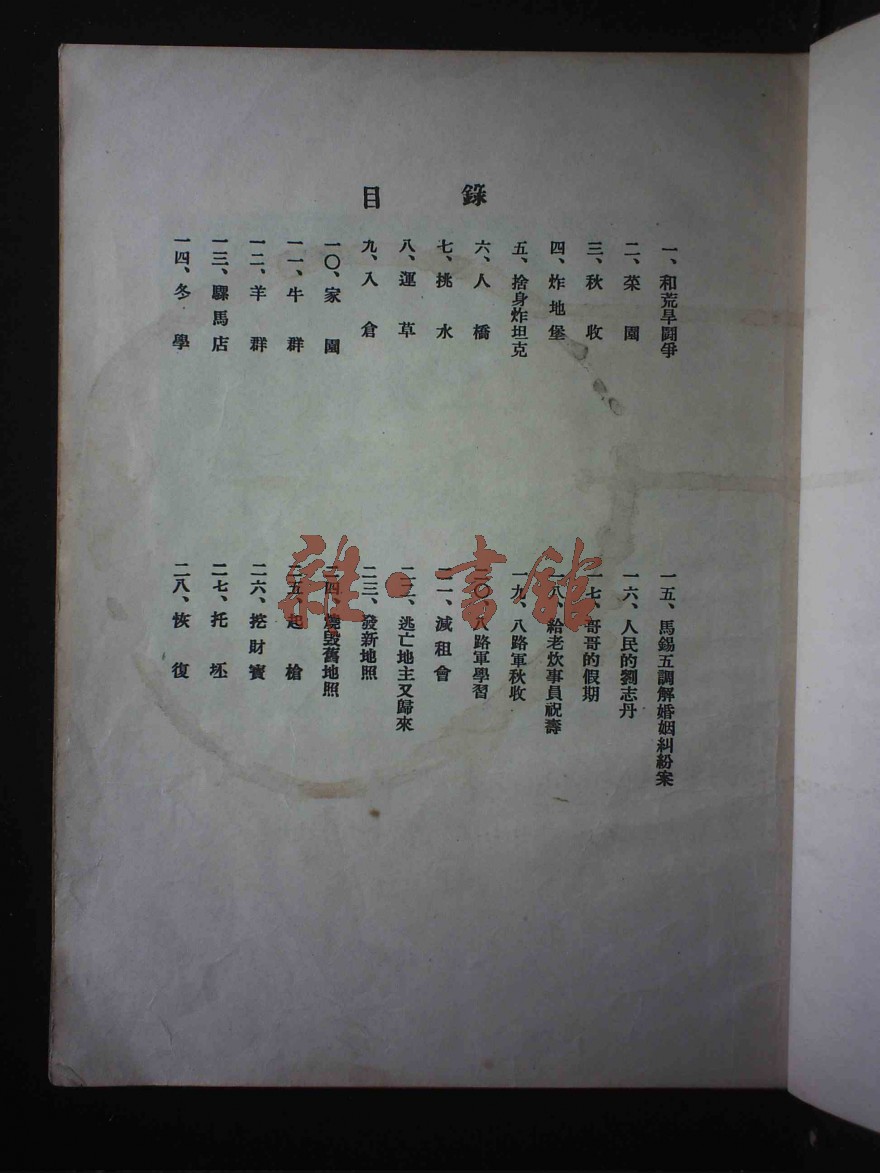 目錄
一、和荒旱鬪爭
二、菜園
三、秋收
四、炸地堡
五、捨身炸坦克
六、人橋
七、挑水
八、運草
九、入倉
一〇、家園
一一、牛群
一二、羊群
一三、騾馬店
一四、冬學
一五、馬錫五調解婚姻糾紛案
一六、人民的劉志丹
一七、哥哥的假期
一八、給老炊事員祝壽
一九、八路軍秋收
二〇、八路軍學習
二一、減租會
二二、逃亡地主又歸來
二三、發新地照
二四、燒毀舊地照
二五、起槍
二六、挖財寶
二七、托坯
二八、恢復
雜·書館